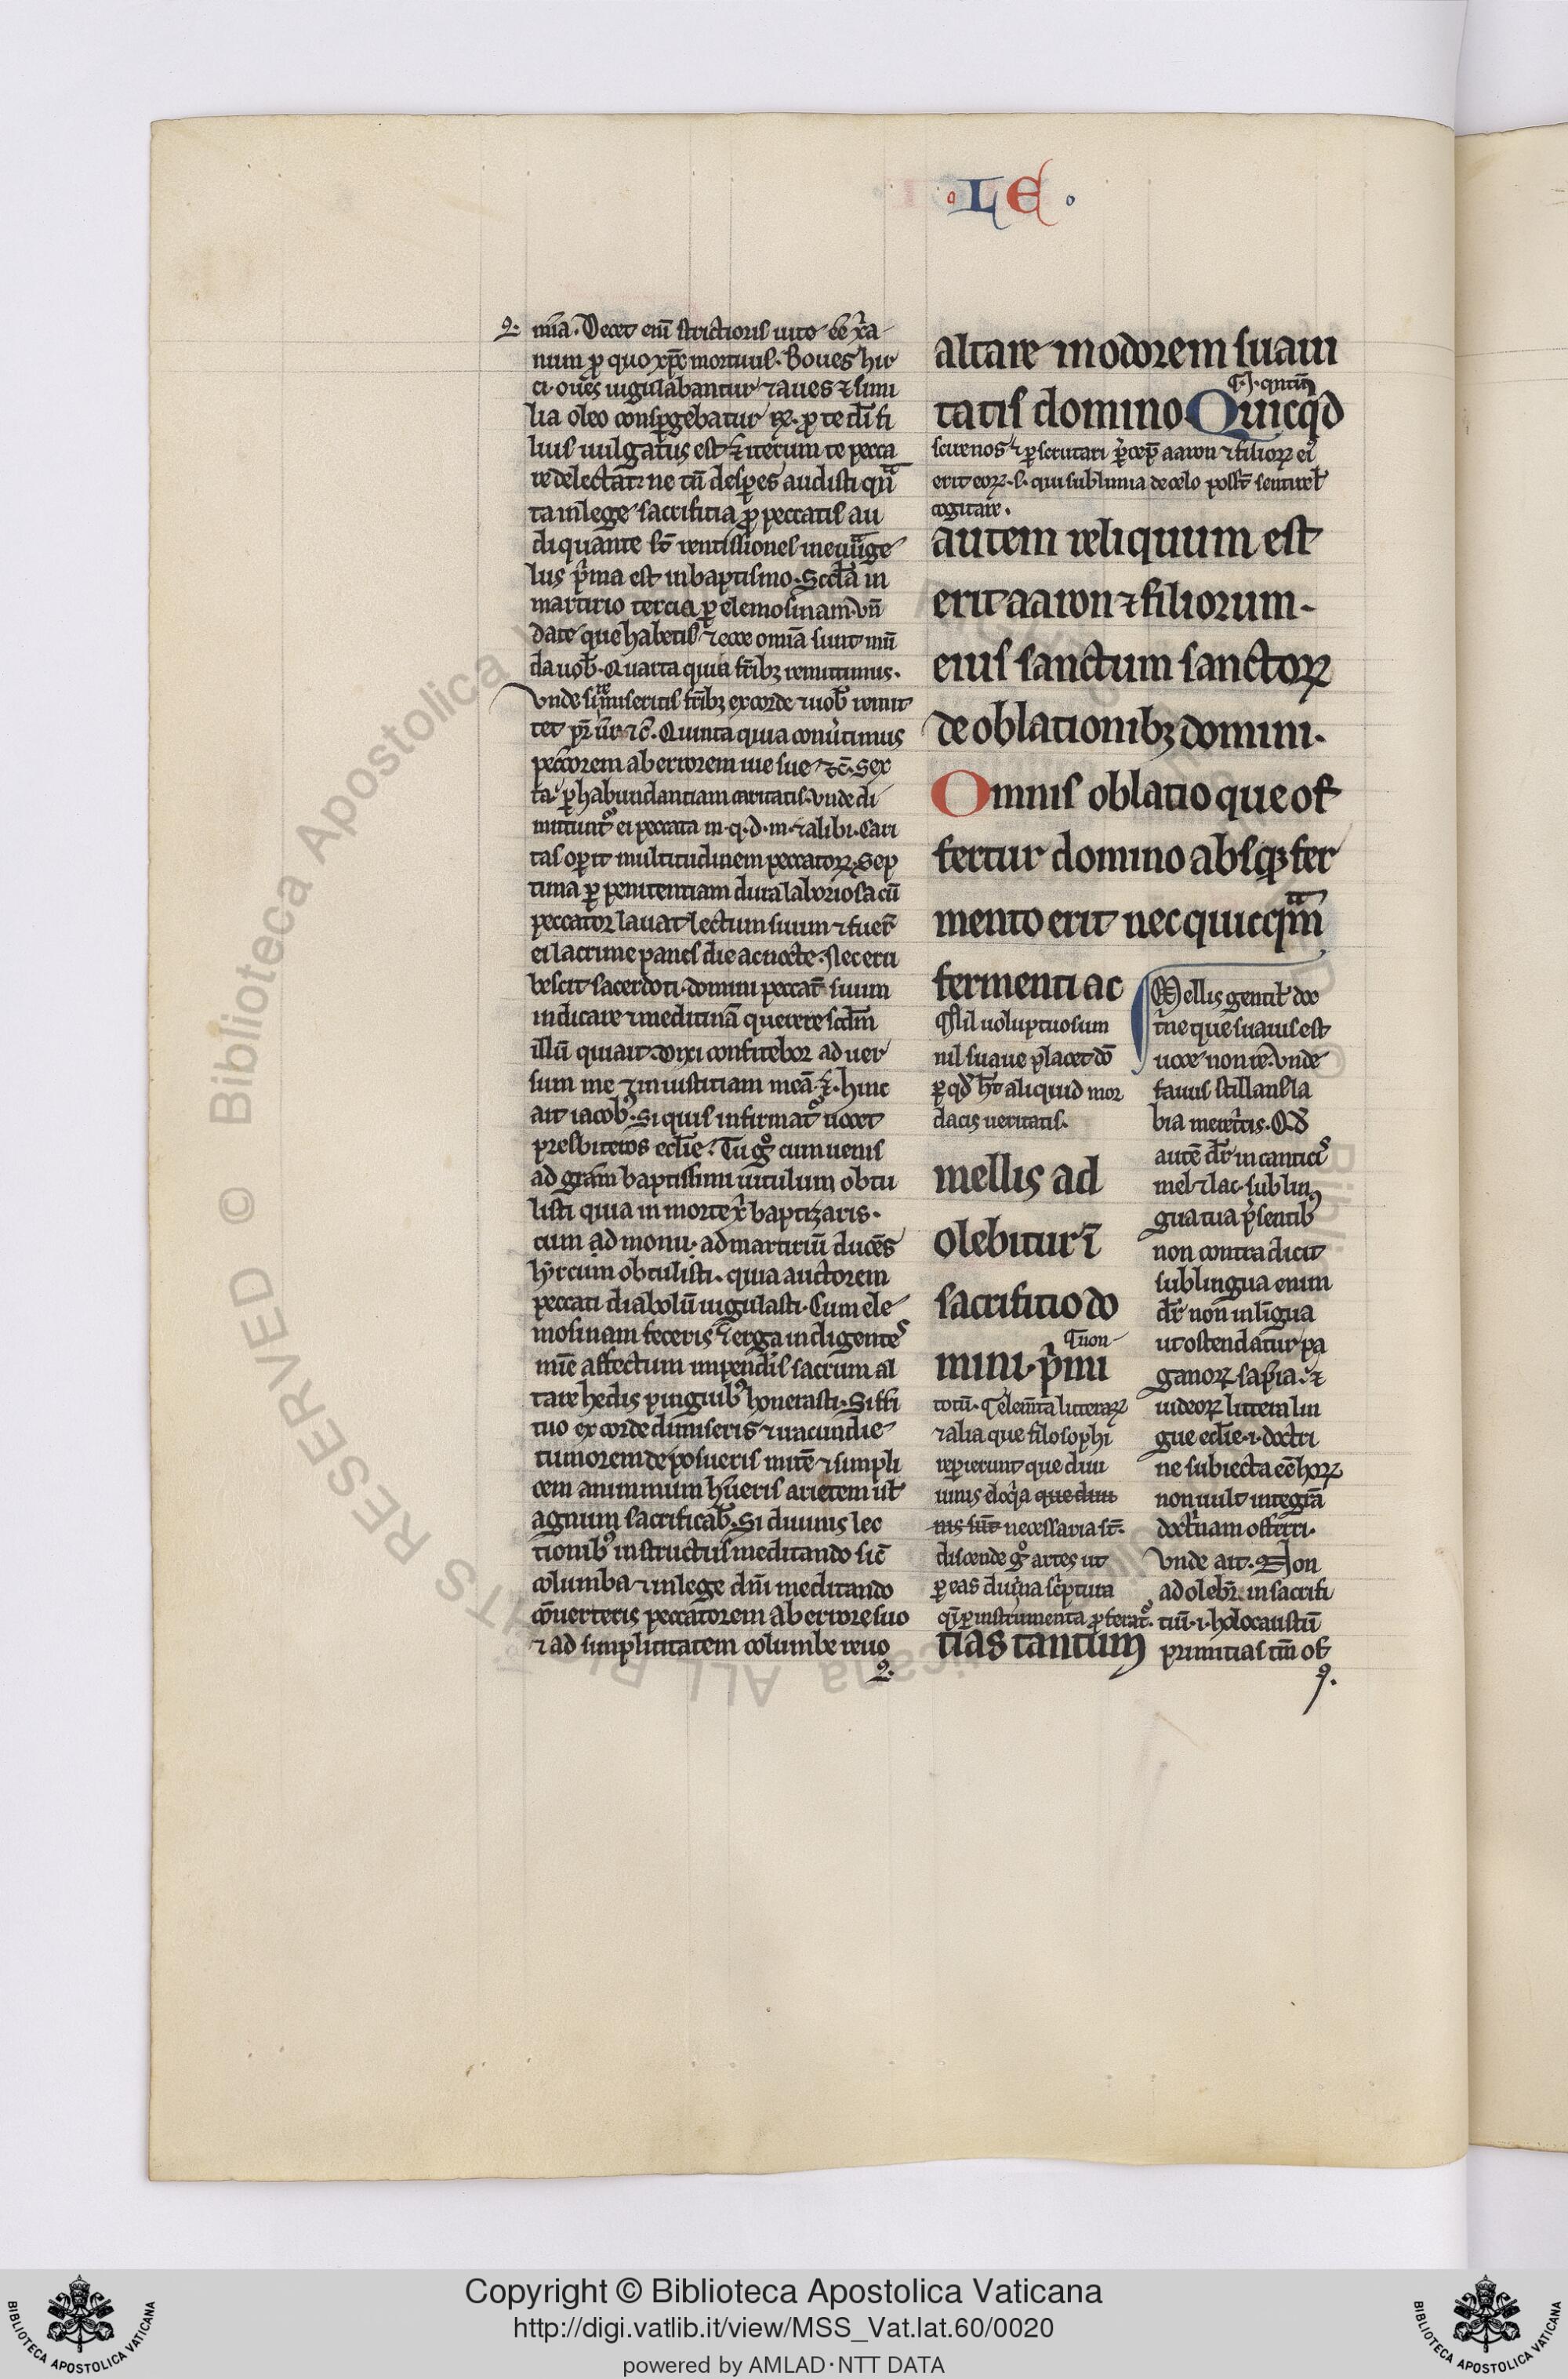 · L E ·
mīa. Decet enī strictioris uite eē xp̄ia
num pro quo xp̄c mortuus. Boues hir
ci oues iugulabantur ⁊ aues ⁊ simi
lia oleo conspgebatur
luis iugulatus est ⁊ iterum te pecca
re delectat ne tn̄ desperes audisti qn̄
ta in lege sacrificia pro peccatis au
di quante sr̄ remissiones in euāge
lus prima est in baptismo. Sec̄da in
martirio tercia per elemosinam. vn̄
date que habetis ⁊ ecce omīa sunt mū
da uob̄. Quarta quia fr̄ib; remittimus.
Vnde si remiseritis fr̄ib; ex corde ⁊ uob̄ remit
tet pr̄ ur̄ ⁊c̄. Quinta quia conu̓timus
pecc̄orem ab errorem uie sue ⁊c̄. Sex
ta. per habundantiam caritatis. vnde di
mittunt᷒ ei peccata m. q. d. m. ⁊ alibi. Cari
tas operit multitudinem peccatoꝝ. Sep
tima per penitentiam dura laboriosa cū
peccator lauat lectum suum ⁊ fuer̄
ei lacrime panes die ac nocte. Nec eru
bescit sacerdoti domini peccat̄ suum
indicare ⁊ medicinā querere scd̄m
illū qui ait. Dixi confitebor aduer
sum me ⁊ iniustitiam meā. ⁊c̄. hinc
ait iacob᷒. Si quis infirmat᷒ uocet
presbiteros ecl̄ie. Tu gͦ cum uenis
ad grām baptissimi uitulum obtu
listi quia in morte xp̄i baptizaris.
cum ad monu. ad martiriū ducēs
hyrcum obtulisti. quia auctorem
peccati diabolū iugulasti. Cum ele
mosinam feceris ⁊ erga indigentes
mīe affectum impendis sacrum al
tare hedis pinguib᷒ honerasti. Si fr̄i
tuo ex corde dimiseris ⁊ iracundie
tumorem deposueris mitē ⁊ simpli
cem animmum hūeris arietem ul̄
agnum sacrificab̄. Si diuinis lec
tionib᷒ instructus meditando sic̄
columba ⁊ in lege dn̄i meditando
cōuerteris peccatorem ab errore suo
⁊ ad simplicitatem columbe reuo
altare in odorem suaui
tatis domino Quicq̄d
erit eoꝝ. s. qui sublimia de celo poss̄t sentire ul̄
cogitare.
autem reliquum est
erit aaron ⁊ filiorum
eius sanctum sanctoꝝ
de oblationib; domini.
Omnis oblatio que of
fertur domino absq; fer
mento erit nec quicq̄m
fermenti ac
Nil uoluptuosum
nil suaue placet dō
per qd̄ ht̄ aliquid mor
dacis ueritatis.
mellis ad
olebitur ī
sacrificio do
mini. Primi
totū. elemt̄a litteraꝝ
⁊ alia que filosophi
reperierunt que diui
necessaria st̄.
discende gͦ artes ut
per eas diuina sc̄ptura
q̄i per instrumenta proferat᷒.
tias tantum
Mellis gentil̄ doc
t̄ne que suauis est
uoce non re. Vnde
fauus stillans la
bia meret̄cis. Qd̄
autē dr̄ in cantici᷒
mel ⁊ lac sub lin
gua tua p̄sentib᷒
non contradicit
sub lingua enim
dr̄ non in līgua
ut ostendatur pa
ganoꝝ sapīa. ⁊
iudeoꝝ littera lin
gue ecl̄ie. i. doctri
ne subiecta eē hoꝝ
non uult integrā
doct̓nam offerri.
Vnde ait. Non
adolebr̄. in sacrifi
tiū. i. holocaustū
primitias tm̄ of
Copyright © Biblioteca Apostolica Vaticana
http://digi.vatlib.it/view/MSS_Vat.lat.60/0020
powered by AMLAD·NTT DATA